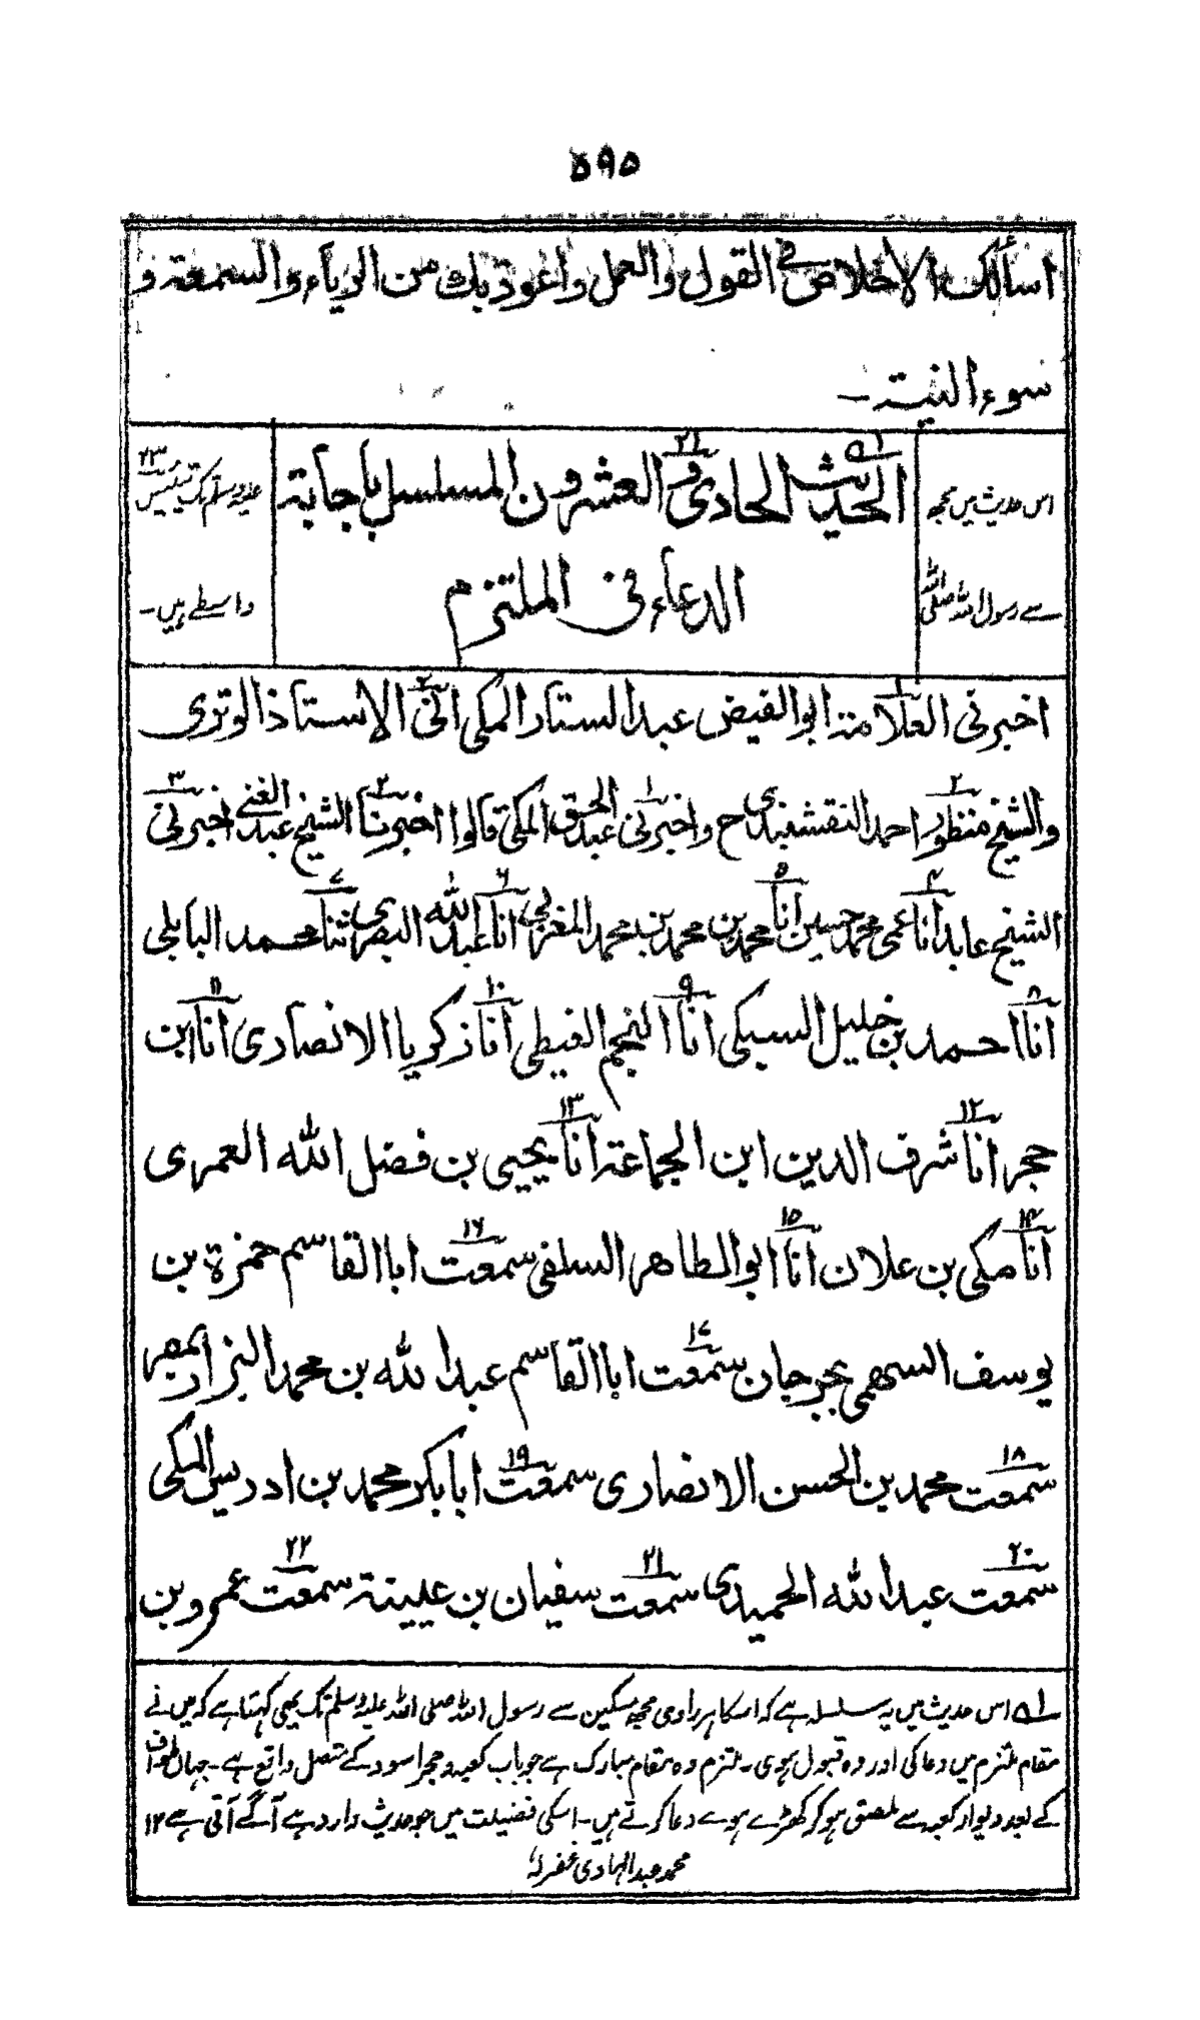 ٥٩٥
اسألك الاخلاص في القول والعمل واعوذ بك من الرياء والسمعة و
سوء النية ـ
الحديث الحادي والعشرون المسلسل باجابة
الدعاء في الملتزم
اس حدیث میں مجھ
سے رسول اللہ صلی اللہ
علیہ وسلم تک تیئیس ۲۳
واسطے ہیں۔
اخبرنی العلامة ابوالفیض عبد الستار المکی انی الاستاذ الوتری
والشیخ منظور احمد النقشبندی ح واخبرنی عبد الحق المکی قالوا اخبرنا الشیخ عبد الغنی اخبرنی
الشیخ عابد انا عمی محمد حسین انا محمد بن محمد بن محمد المغربی انا عبد الله البصری ثنا محمد البابلی
انا احمد بن خلیل السبکی انا النجم الغیطی انا زکریا الانصاری انا ابن
حجر انا شرف الدین ابن الجماعة انا یحیی بن فضل الله العمری
انا مکی بن علان انا ابوالطاهر السلفی سمعت ابا القاسم حمزة بن
یوسف السهمی بجرجان سمعت ابا القاسم عبد الله بن محمد البزار بمصر
سمعت محمد بن الحسن الانصاری سمعت ابابکر محمد بن ادریس المکی
سمعت عبد الله الحمیدی سمعت سفیان بن عیینة سمعت عمرو بن
اس حدیث میں یہ سلسلہ ہے کہ اسکا ہر راوی مجھ مسکین سے رسول اللہ صلی اللہ علیہ وسلم تک یہی کہتا ہے کہ میں نے
مقام ملتزم میں دعا کی اور وہ قبول ہوی۔ ملتزم وہ مقام مبارک ہے جو باب کعبہ و حجر اسود کے متصل واقع ہے۔ جہاں طواف
کے بعد دیوار کعبہ سے ملصق ہو کر کھڑے ہوے دعا کرتے ہیں۔ اسکی فضیلت میں جو حدیث وارد ہے آگے آتی ہے ۱۲
محمد عبد الہادی غفرلہ